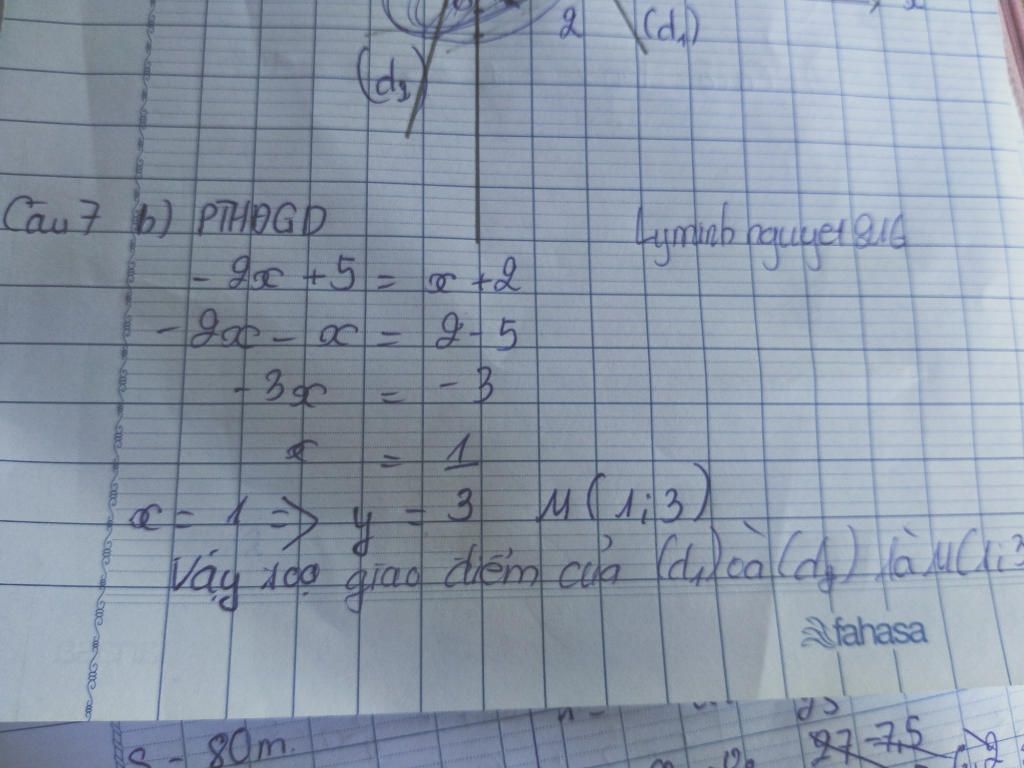 2 (d₁)
(d₂)
Câu 7 b) PTHĐGĐ
Lyminh nguyet 9/6
- 2x + 5 = x + 2
- 2x - x = 2 - 5
- 3x = - 3
x = 1
x = 1 => y = 3 M(1;3)
Vậy tọa giao điểm của (d₁) và (d₂) là M(1;3
fahasa
S = 80m.
27 - 7,5